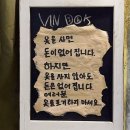 VIN DOK
옷을 사면
돈이 없어 집니다.
하지만,
옷을 사지 않아도
돈은 없어 집니다.
여러분
옷을 포기하지 마세요.